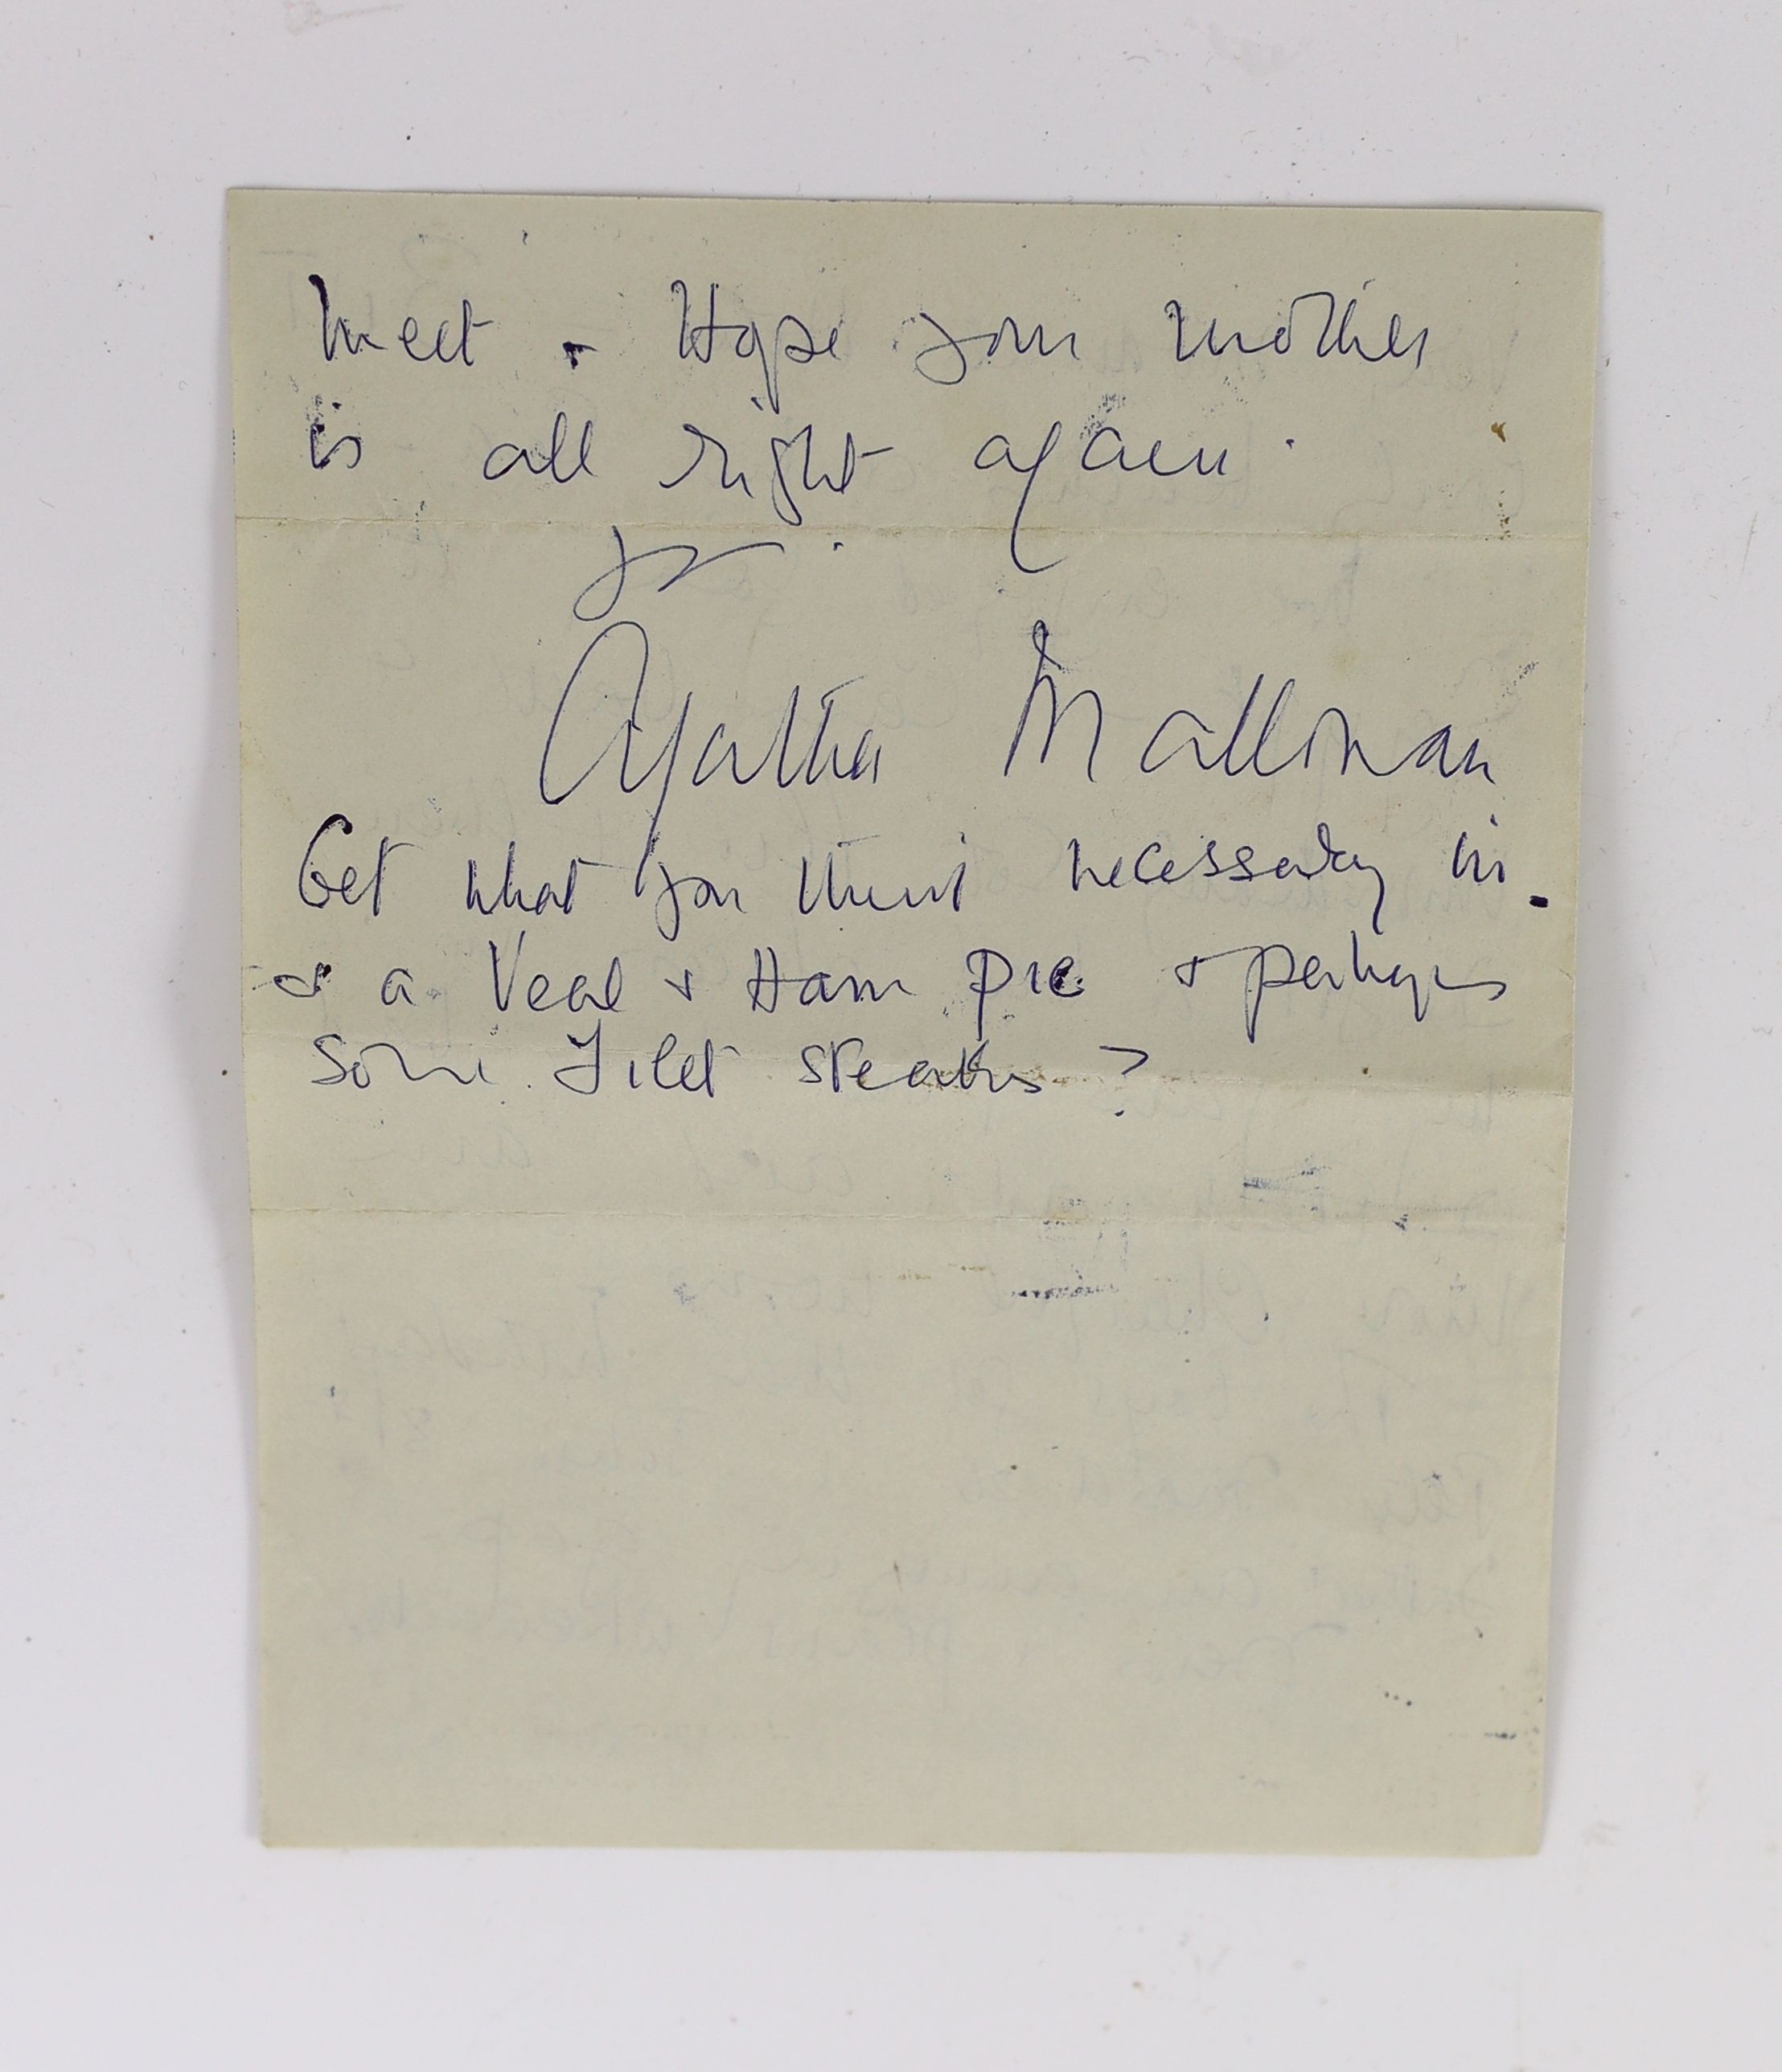 meet. Hope your mother
is all right again.
yrs.
Agatha Mallowan
Get what you think necessary in -
& a Veal & Ham pie & perhaps
some Filet steaks?